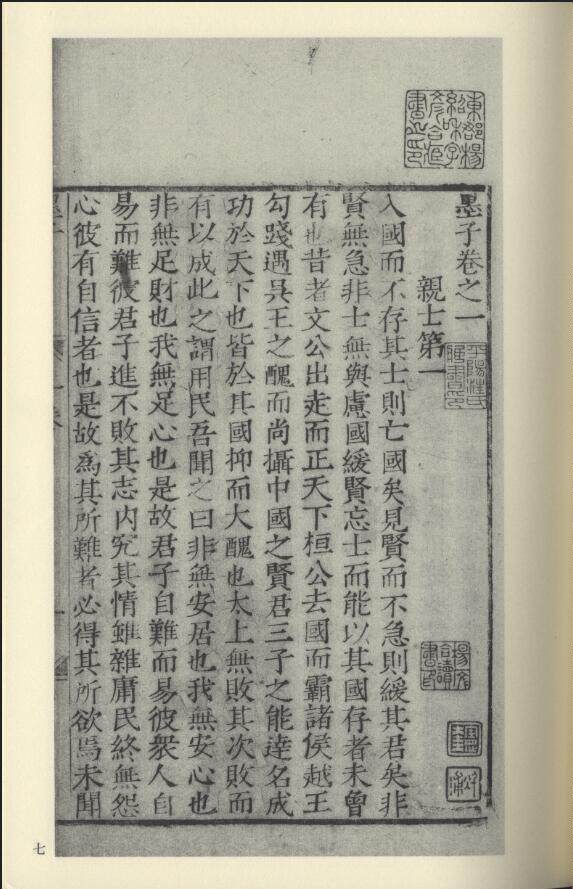 東郡楊
紹和字
彥合臧
書之印
墨子卷之一
平陽汪氏
藏書印
楊彥
合讀
書印
親士第一
入國而不存其士則亡國矣見賢而不急則緩其君矣非
賢無急非士無與慮國緩賢忘士而能以其國存者未曾
有也昔者文公出走而正天下桓公去國而霸諸侯越王
勾踐遇吳王之醜而尚攝中國之賢君三子之能達名成
功於天下也皆於其國抑而大醜也太上無敗其次敗而
有以成此之謂用民吾聞之曰非無安居也我無安心也
非無足財也我無足心也是故君子自難而易彼衆人自
易而難彼君子進不敗其志内究其情雖雜庸民終無怨
心彼有自信者也是故為其所難者必得其所欲焉未聞
七